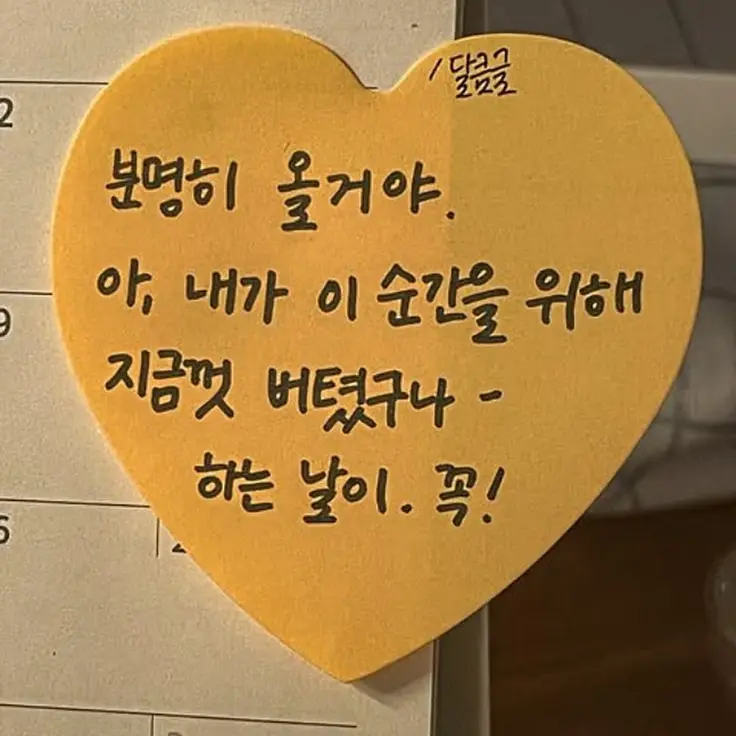 /달콤글
분명히 올거야.
아, 내가 이 순간을 위해
지금껏 버텼구나 -
하는 날이. 꼭!
2
9